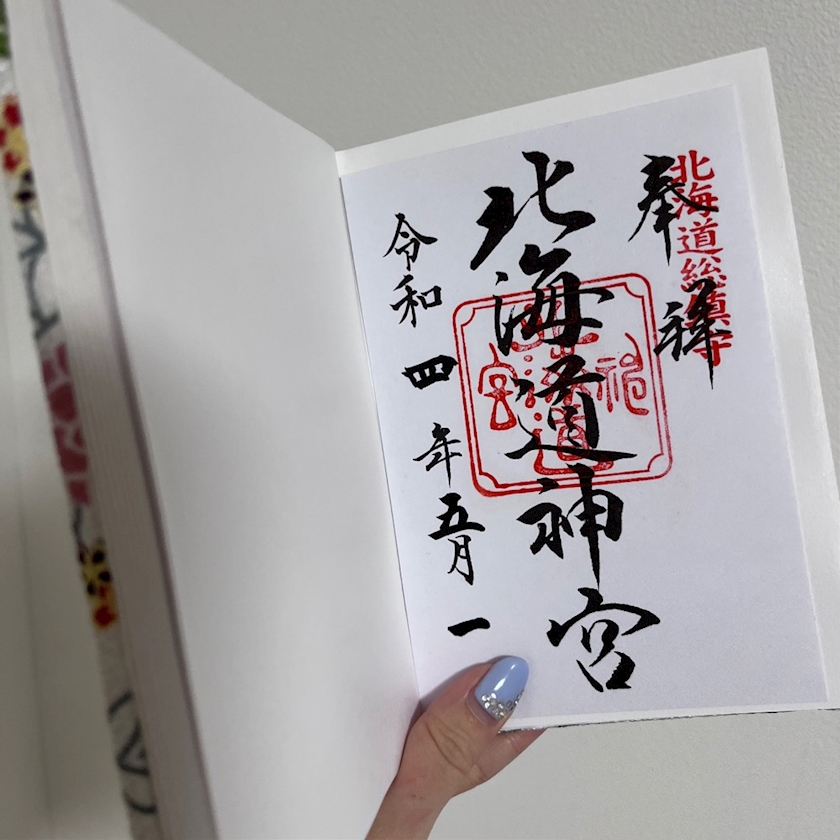 奉拝
北海道総鎮守
北海道神宮
令和四年五月一